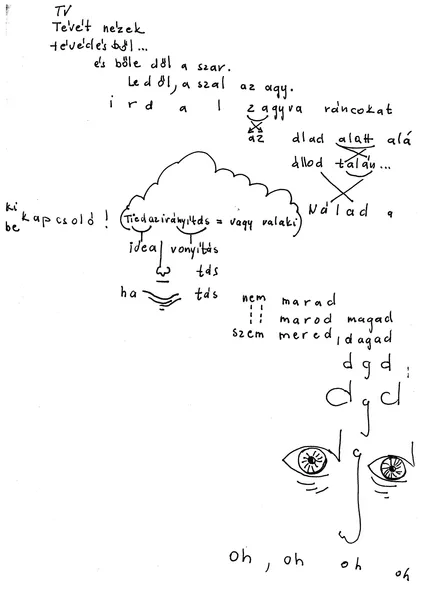 TV
Tévét nézek
tévedésből...
és bőle dől a szar.
Ledől, a szal az agy.
i r d a l z agyva ráncokat
az álad alatt alá
állod talán...
ki be kapcsoló! Tiédazirányítás = vagy valaki Nálad a
idea vonyítás
tás
ha tás
nem marad
marod magad
szem mered, dagad
d g d ;
d g d
g
oh, oh oh oh